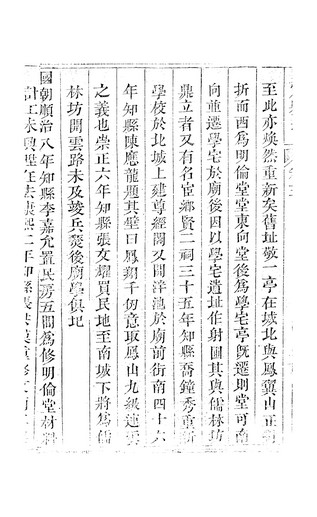 至此亦煥然重新矣舊址敬一亭在城北與鳳翼山正相
折而西為明倫堂堂東向堂後為學宅亭既遷則堂可南
向並遷學宅於廟後因以學宅遺址作射圃其與儒林坊
鼎立者又有名宦鄉賢二祠三十五年知縣喬鍾秀重新
學校於北城上建尊經閣又開泮池於廟前街南四十六
年知縣陳應龍題其壁曰鳳翔千仞意取鳳山九級連雲
之義也崇正六年知縣張文耀買民地至南城下將為儒
林坊開雲路未及竣兵燹後廟學俱圮
國朝順治八年知縣李嘉允置民房五間為修明倫堂材料